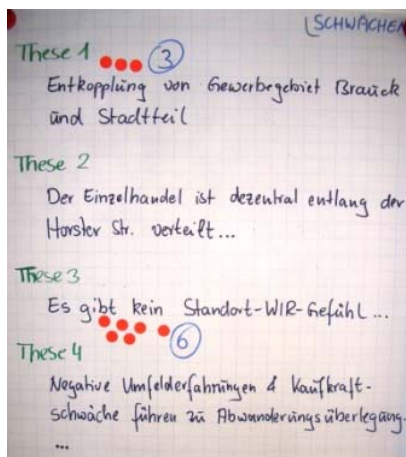 SCHWÄCHEN
These 1
3
Entkopplung von Gewerbegebiet Brauck
und Stadtteil
These 2
Der Einzelhandel ist dezentral entlang der
Horster Str. verteilt...
These 3
Es gibt kein Standort-WIR-Gefühl...
6
These 4
Negative Umfelderfahrungen & Kaufkraft-
schwäche führen zu Abwanderungsüberlegung.
...